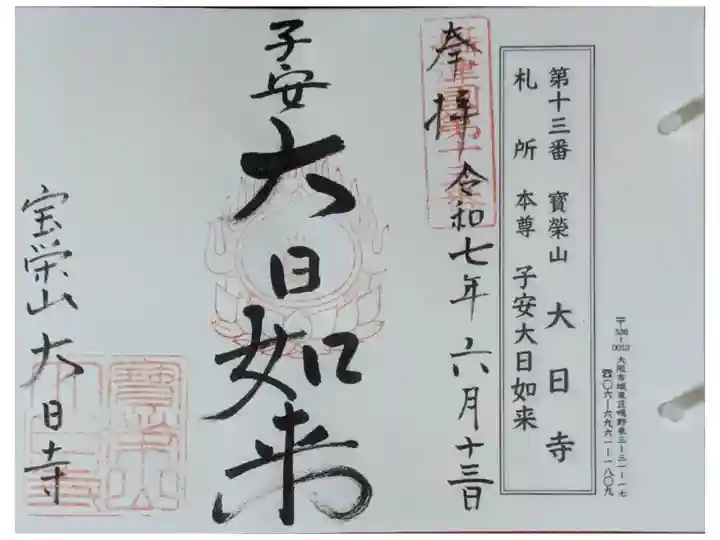 〒536-0013 大阪市城東区鴫野東三-三一-一七
☎〇六-六九六一-一八〇九
第十三番 寳榮山 大日寺
札所 本尊 子安大日如来
奉拝 令和七年六月十三日
子安大日如来
宝栄山大日寺
寳榮山
大日寺